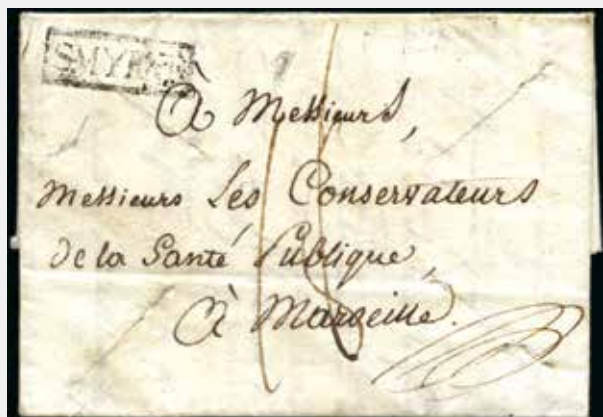 SMYRNE
À Messieurs,
Messieurs Les Conservateurs
de la Santé Publique,
à Marseille.